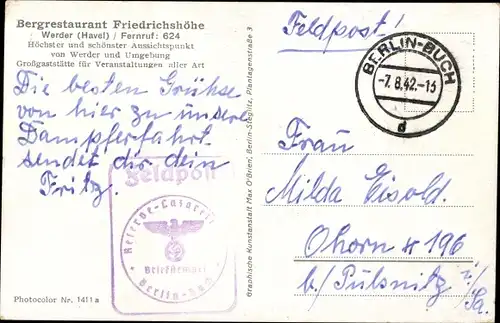 Bergrestaurant Friedrichshöhe
Werder (Havel) / Fernruf: 624
Höchster und schönster Aussichtspunkt
von Werder und Umgebung
Großgaststätte für Veranstaltungen aller Art
Die besten Grühse
von hier zu unsere
Dampferfahrt
sendet dir dein
Fritz.
Feldpost
Reserve-Lazarett
Briefstempel
Berlin-Buch
Photocolor Nr. 1411 a
Graphische Kunstanstalt Max O'Brien, Berlin-Steglitz, Plantagenstraße 3
Feldpost!
BERLIN-BUCH
-7.8.42.-13
d
Frau
Milda Eisold.
Ohorn № 196
b/ Pulsnitz i/Sa.